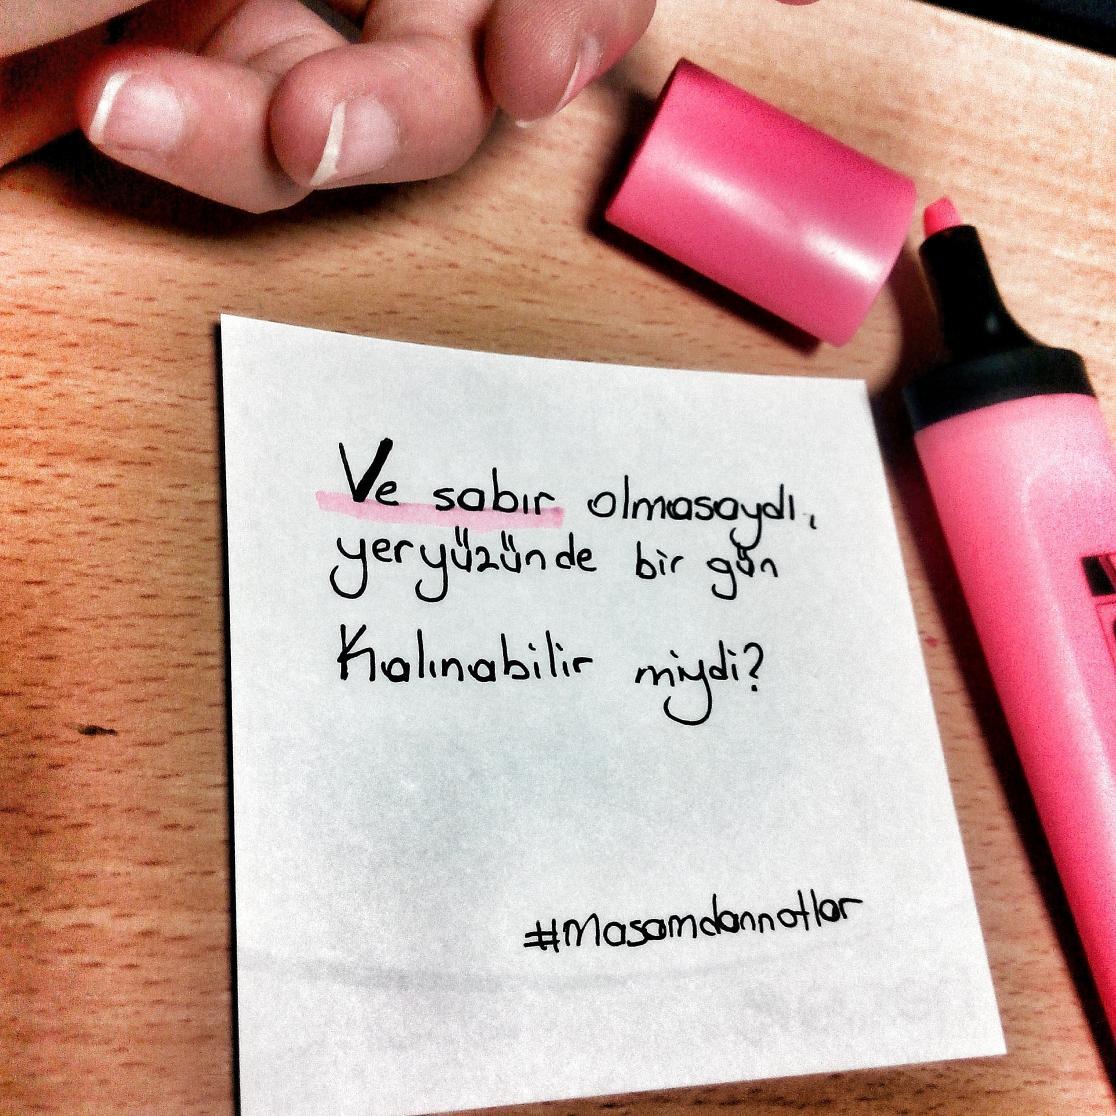 Ve sabır olmasaydı,
yeryüzünde bir gün
Kalınabilir miydi?
#Masamdannotlar